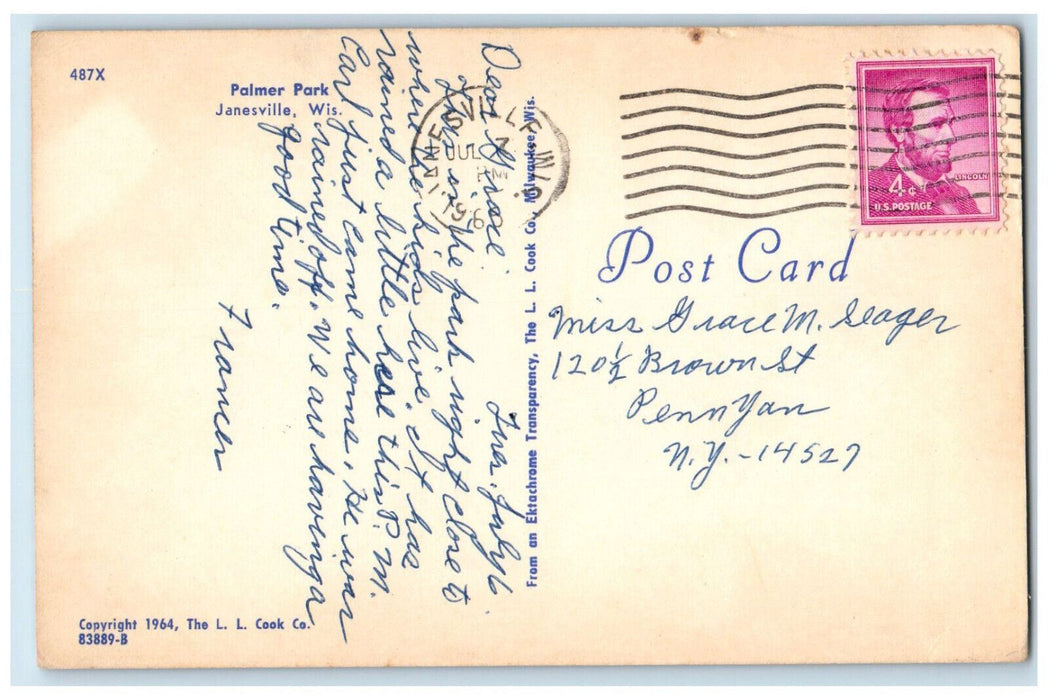 487X
Palmer Park
Janesville, Wis.
Dear Grace:
Tues. July 6.
in the park right close to
where the kids live. It has
rained a little here this P.M.
Carl just came home. He was
rained off. We are having a
good time.
Frances
Copyright 1964, The L. L. Cook Co.
83889-B
From an Ektachrome Transparency, The L. L. Cook Co., Milwaukee, Wis.
JANESVILLE WIS.
JUL 7
PM
196
LINCOLN
4¢
U.S. POSTAGE
Post Card
Miss Grace M. Seager
120½ Brown St
Penn Yan
N.Y. - 14527